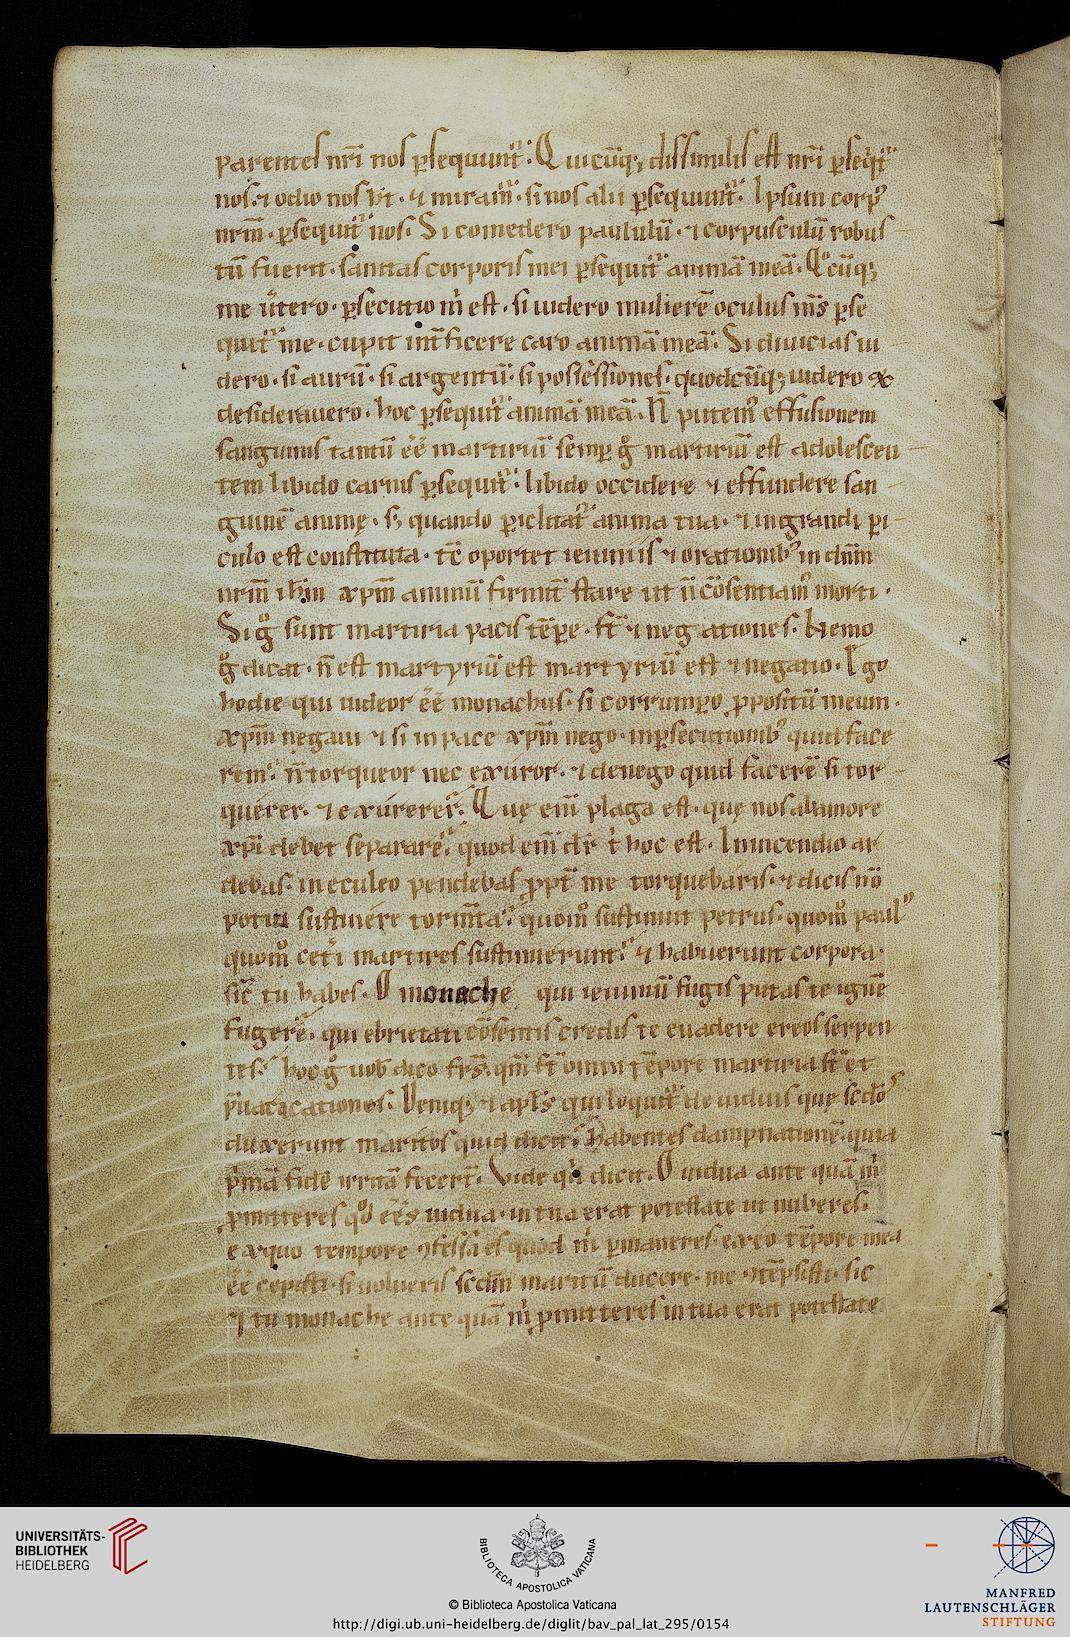 parentes nr̄i nos ꝑsequunt᷑. Quicūq; dissimilis est nr̄i ꝑseq̇t᷑
nos. ⁊ odio nos h̄t. ⁊ miram᷑. si nos alii ꝑsequunt᷑. Ipsum corpꝰ
nr̄m. ꝑsequit᷑ nos. Si comedero paululū. ⁊ corpusculū robus
tū fuerit. sanitas corporis mei ꝑsequit᷑ animā meā. Qͦcūq;
me u̓tero. ꝑsecutio m̓ est. si uidero mulierē oculus m̄s ꝑse
quit᷑ me. cupit int̓ficere caro animā meā. Si diuicias ui
dero. si aurū. si argentū. si possessiones. quodcūq; uidero ⁊
desiderauero. hoc ꝑsequit᷑ animā meā. N̄ putemꝰ effusionem
sanguinis tantū ēē martiriū semꝑ gͦ martiriū est adolescen
tem libido carnis ꝑsequit᷑. libido occidere ⁊ effundere san
guinē animę. s; quando ꝑiclitat᷑ anima tua. ⁊ in grandi ꝑi
culo est constituta. tc̄ oportet ieiuniis ⁊ orationibꝰ in dn̄m
nr̄m ih̄m xp̄m animū firmit̓ stare ut n̄ cōsentiamꝰ morti.
Si gͦ sunt martiria pacis tēpe. st̄ ⁊ negationes. Nemo
gͦ dicat. n̄ est martyriū est martyriū est ⁊ negatio. Ego
hodie qui uideor ēē monachus. si corrumpo ꝓpositū meum.
xp̄m negaui ⁊ si in pace xp̄m nego. in ꝑsecutionibꝰ quid face
rem. n̄ torqueor nec exuror. ⁊ denego quid facerē si tor
querer. ⁊ exurerer. Quę eni̅ plaga est. quę nos ab amore
xp̄i debet separare. quod eni̅ dr̄ t̓ hoc est. In incendio ar
debas. in eculeo pendebas ꝓpt̓ me torquebaris. ⁊ dicis nō
potui sustinere torm̄ta. quomͦ sustinuit petrus. quomͦ paulꝰ
quomͦ cet̓i martires sustinuerunt. ⁊ habuerunt corpora.
sic̄ tu habes. O monache qui ieiuniū fugis putas te ignē
fugere. qui ebrietati cōsentis credis te euadere ereos serpen
tes. hoc gͦ uob̄ dico fr̄s. qm̄ st̄ omni tēpore martiria st̄ et
Deniq; ⁊ apl̄s qui loquit᷑ de uiduis que scd̄o
duxerunt maritos quid dicit. habentes dampnationē. quia
p̓mā fidē irritā fecer̄t. Vide qͥ dicit. O uidua ante quā m̓
ꝓmitteres qͦd ēēs uidua. in tua erat potestate ut nuberes.
ex quo tempore ꝯfessa es quod m̓ ꝑmaneres. ex eo tēpore mea
ēē cepisti. si uolueris scdm̄ maritū ducere. me ꝯtēpsisti. sic
⁊ tu monache ante quā m̓ ꝓmitteres in tua erat potestate
UNIVERSITÄTS-
BIBLIOTHEK
HEIDELBERG
BIBLIOTECA APOSTOLICA VATICANA
© Biblioteca Apostolica Vaticana
http://digi.ub.uni-heidelberg.de/diglit/bav_pal_lat_295/0154
MANFRED
LAUTENSCHLÄGER
STIFTUNG